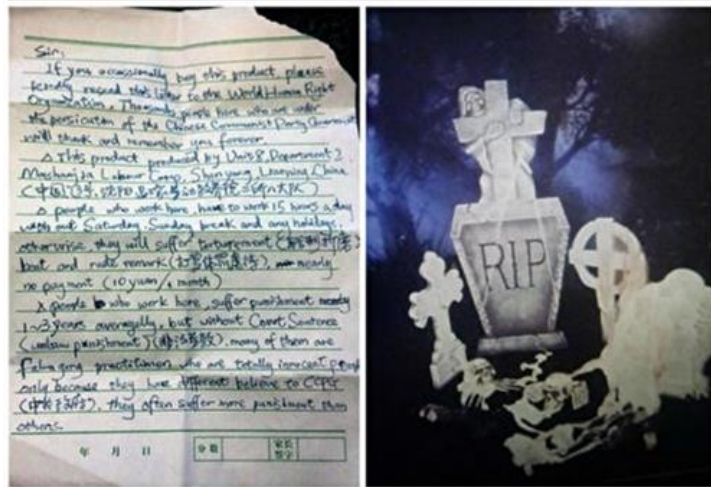 Sir:
If you occassionally buy this product, please
kindly resend this letter to the World Human Right
Organization. Thousands people here who are under
the persicution of the Chinese Communist Party Government
will thank and remember you forever.
△ This product produced by Unit 8, Department 2
Mashanjia Labour Camp, Shenyang, Liaoning, China
(中国,辽宁,沈阳,
△ people who work here, have to work 15 hours a day
with out Saturday, Sunday break and any holidays.
otherwise, they will suffer
beat and rude remark nearly
no payment (10 yuan/1 month)
△ people who work here, suffer punishment nearly
1~3 years averagelly, but without Court Sentence
(unlaw punishment) (非法劳教). many of them are
Falun gong practitioner who are totally innocent people
only because they have different believe to CCPG
they often suffer more punishment than
others.
年 月 日
分数
家长签字
RIP